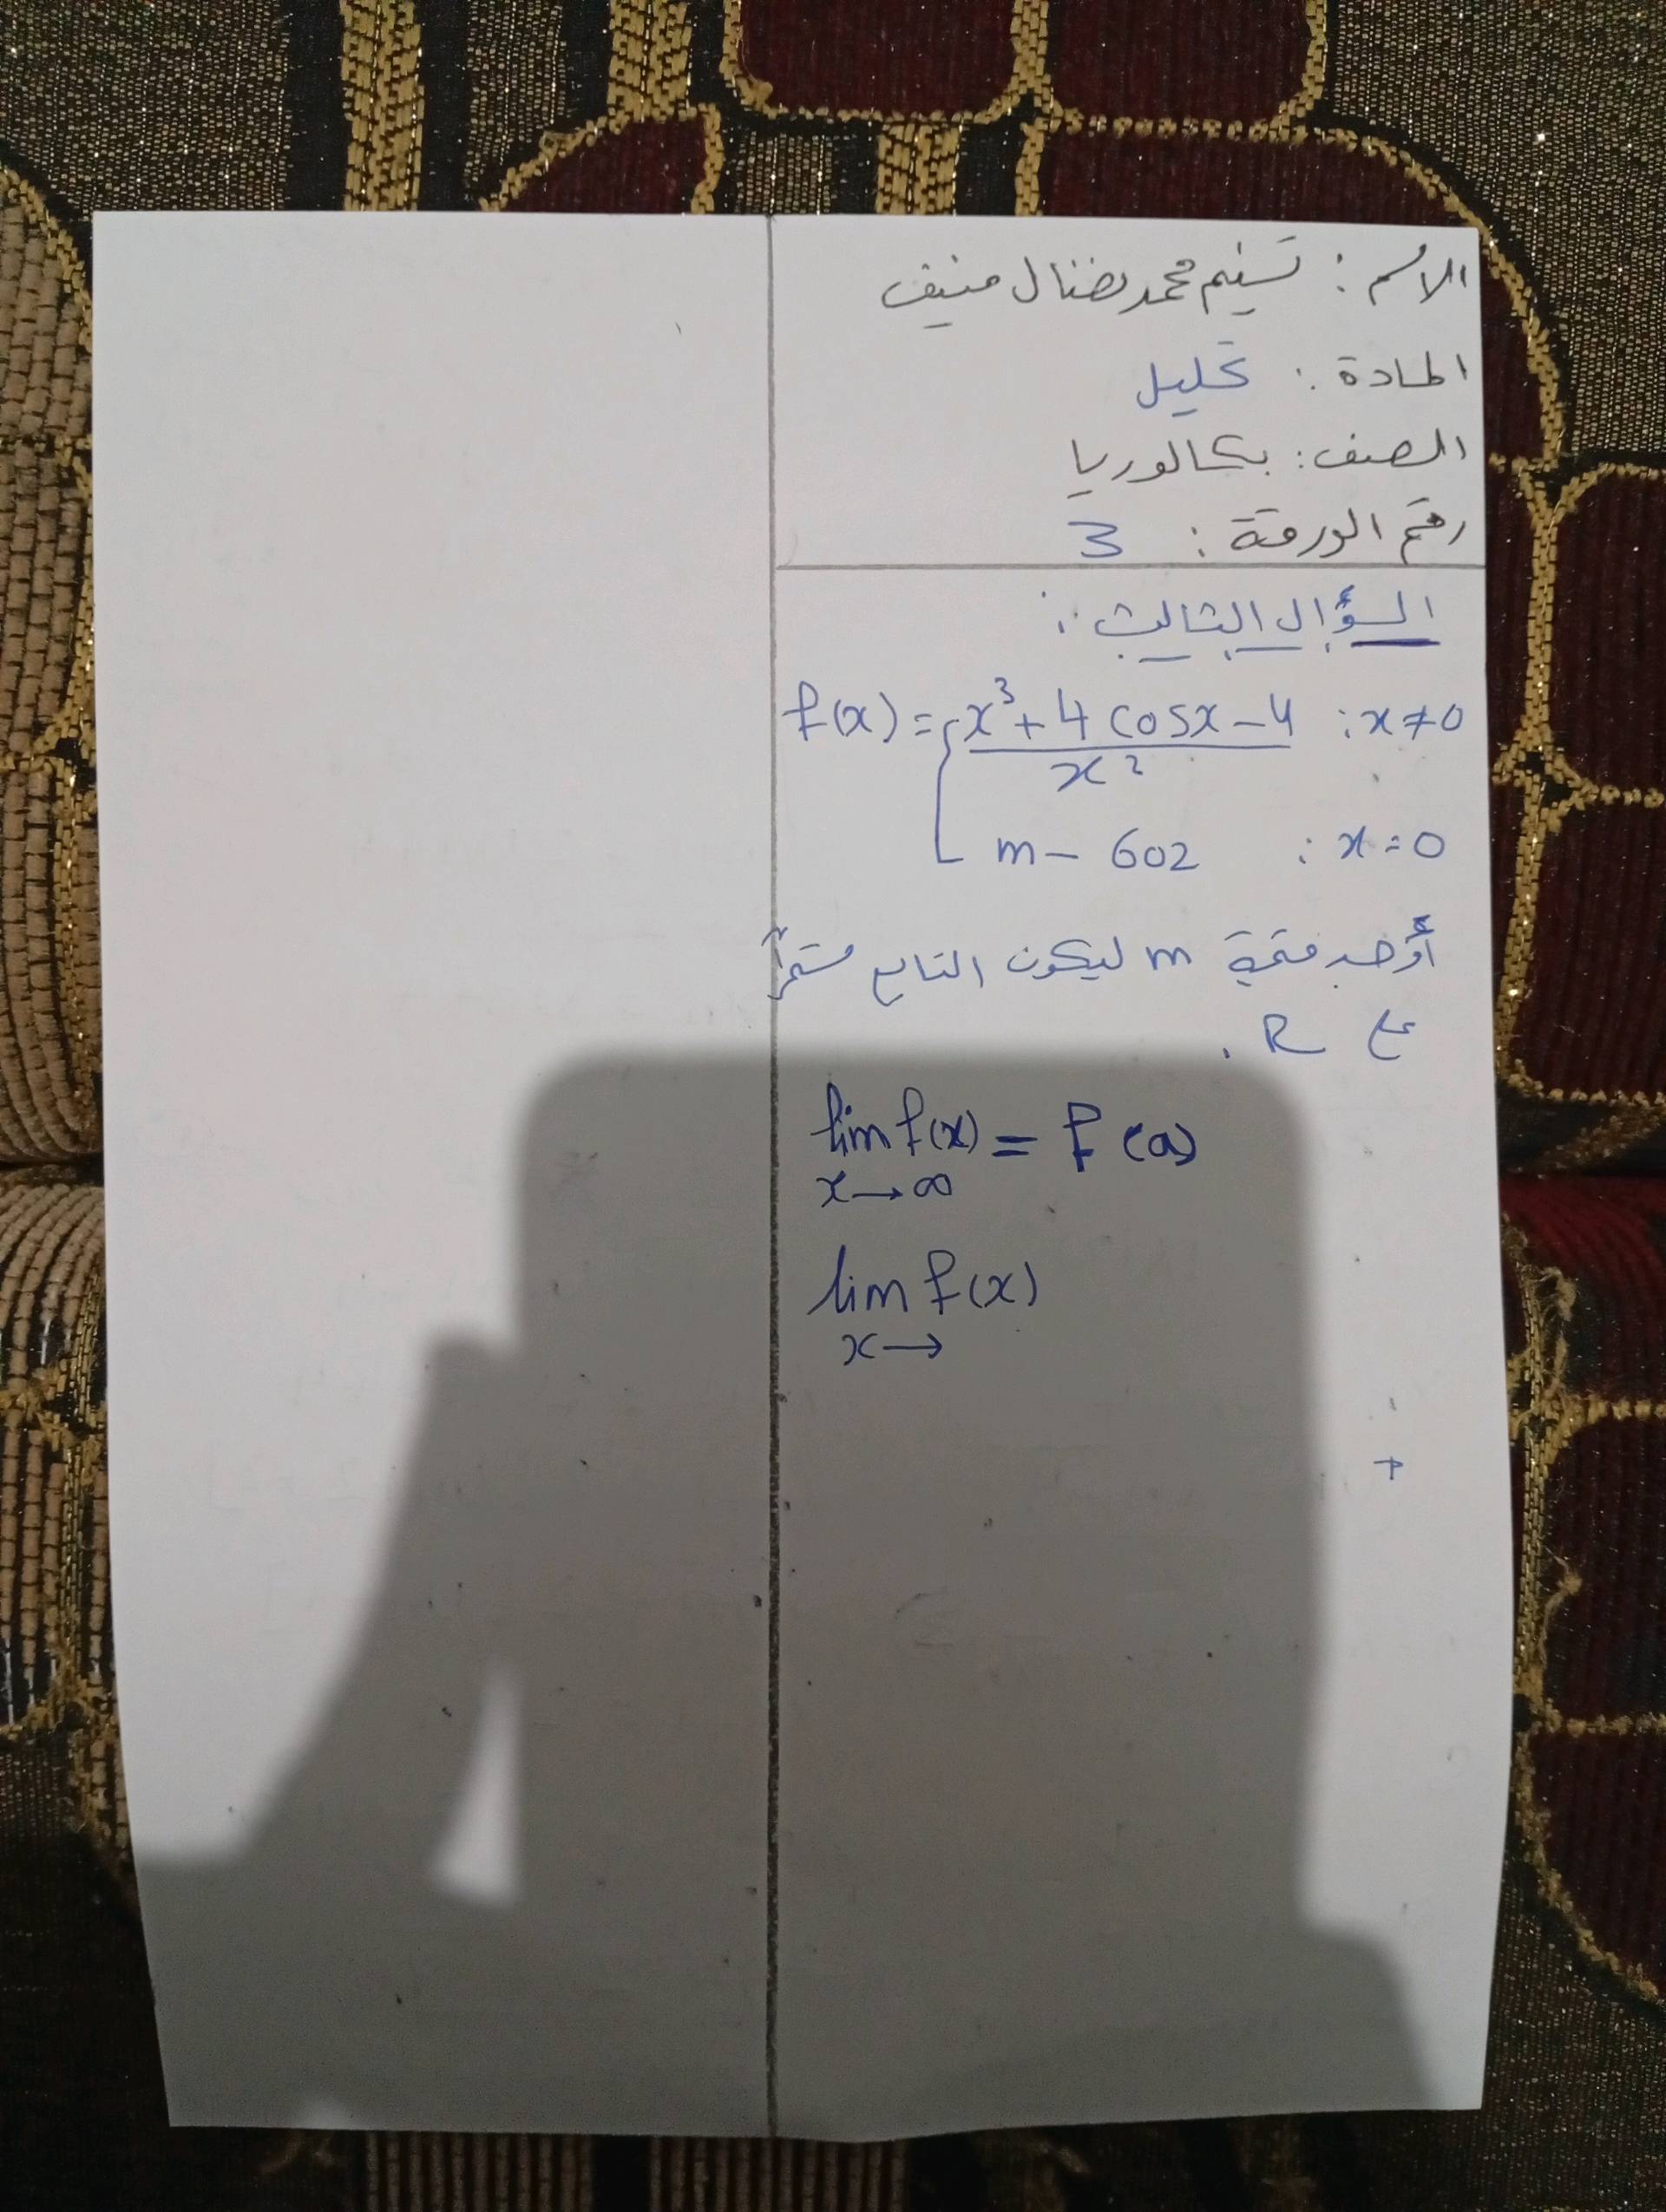 الاسم : تسنيم محمد نضال منيف
المادة : تحليل
الصف : بكالوريا
رقم الورقة : 3
السؤال الثالث :
f(x) = { x³ + 4 cosx - 4 / x² : x ≠ 0
m - 602 : x = 0
أوجد قيمة m ليكون التابع مستمراً
على R .
lim f(x) = f(a)
x → ∞
lim f(x)
x →
+